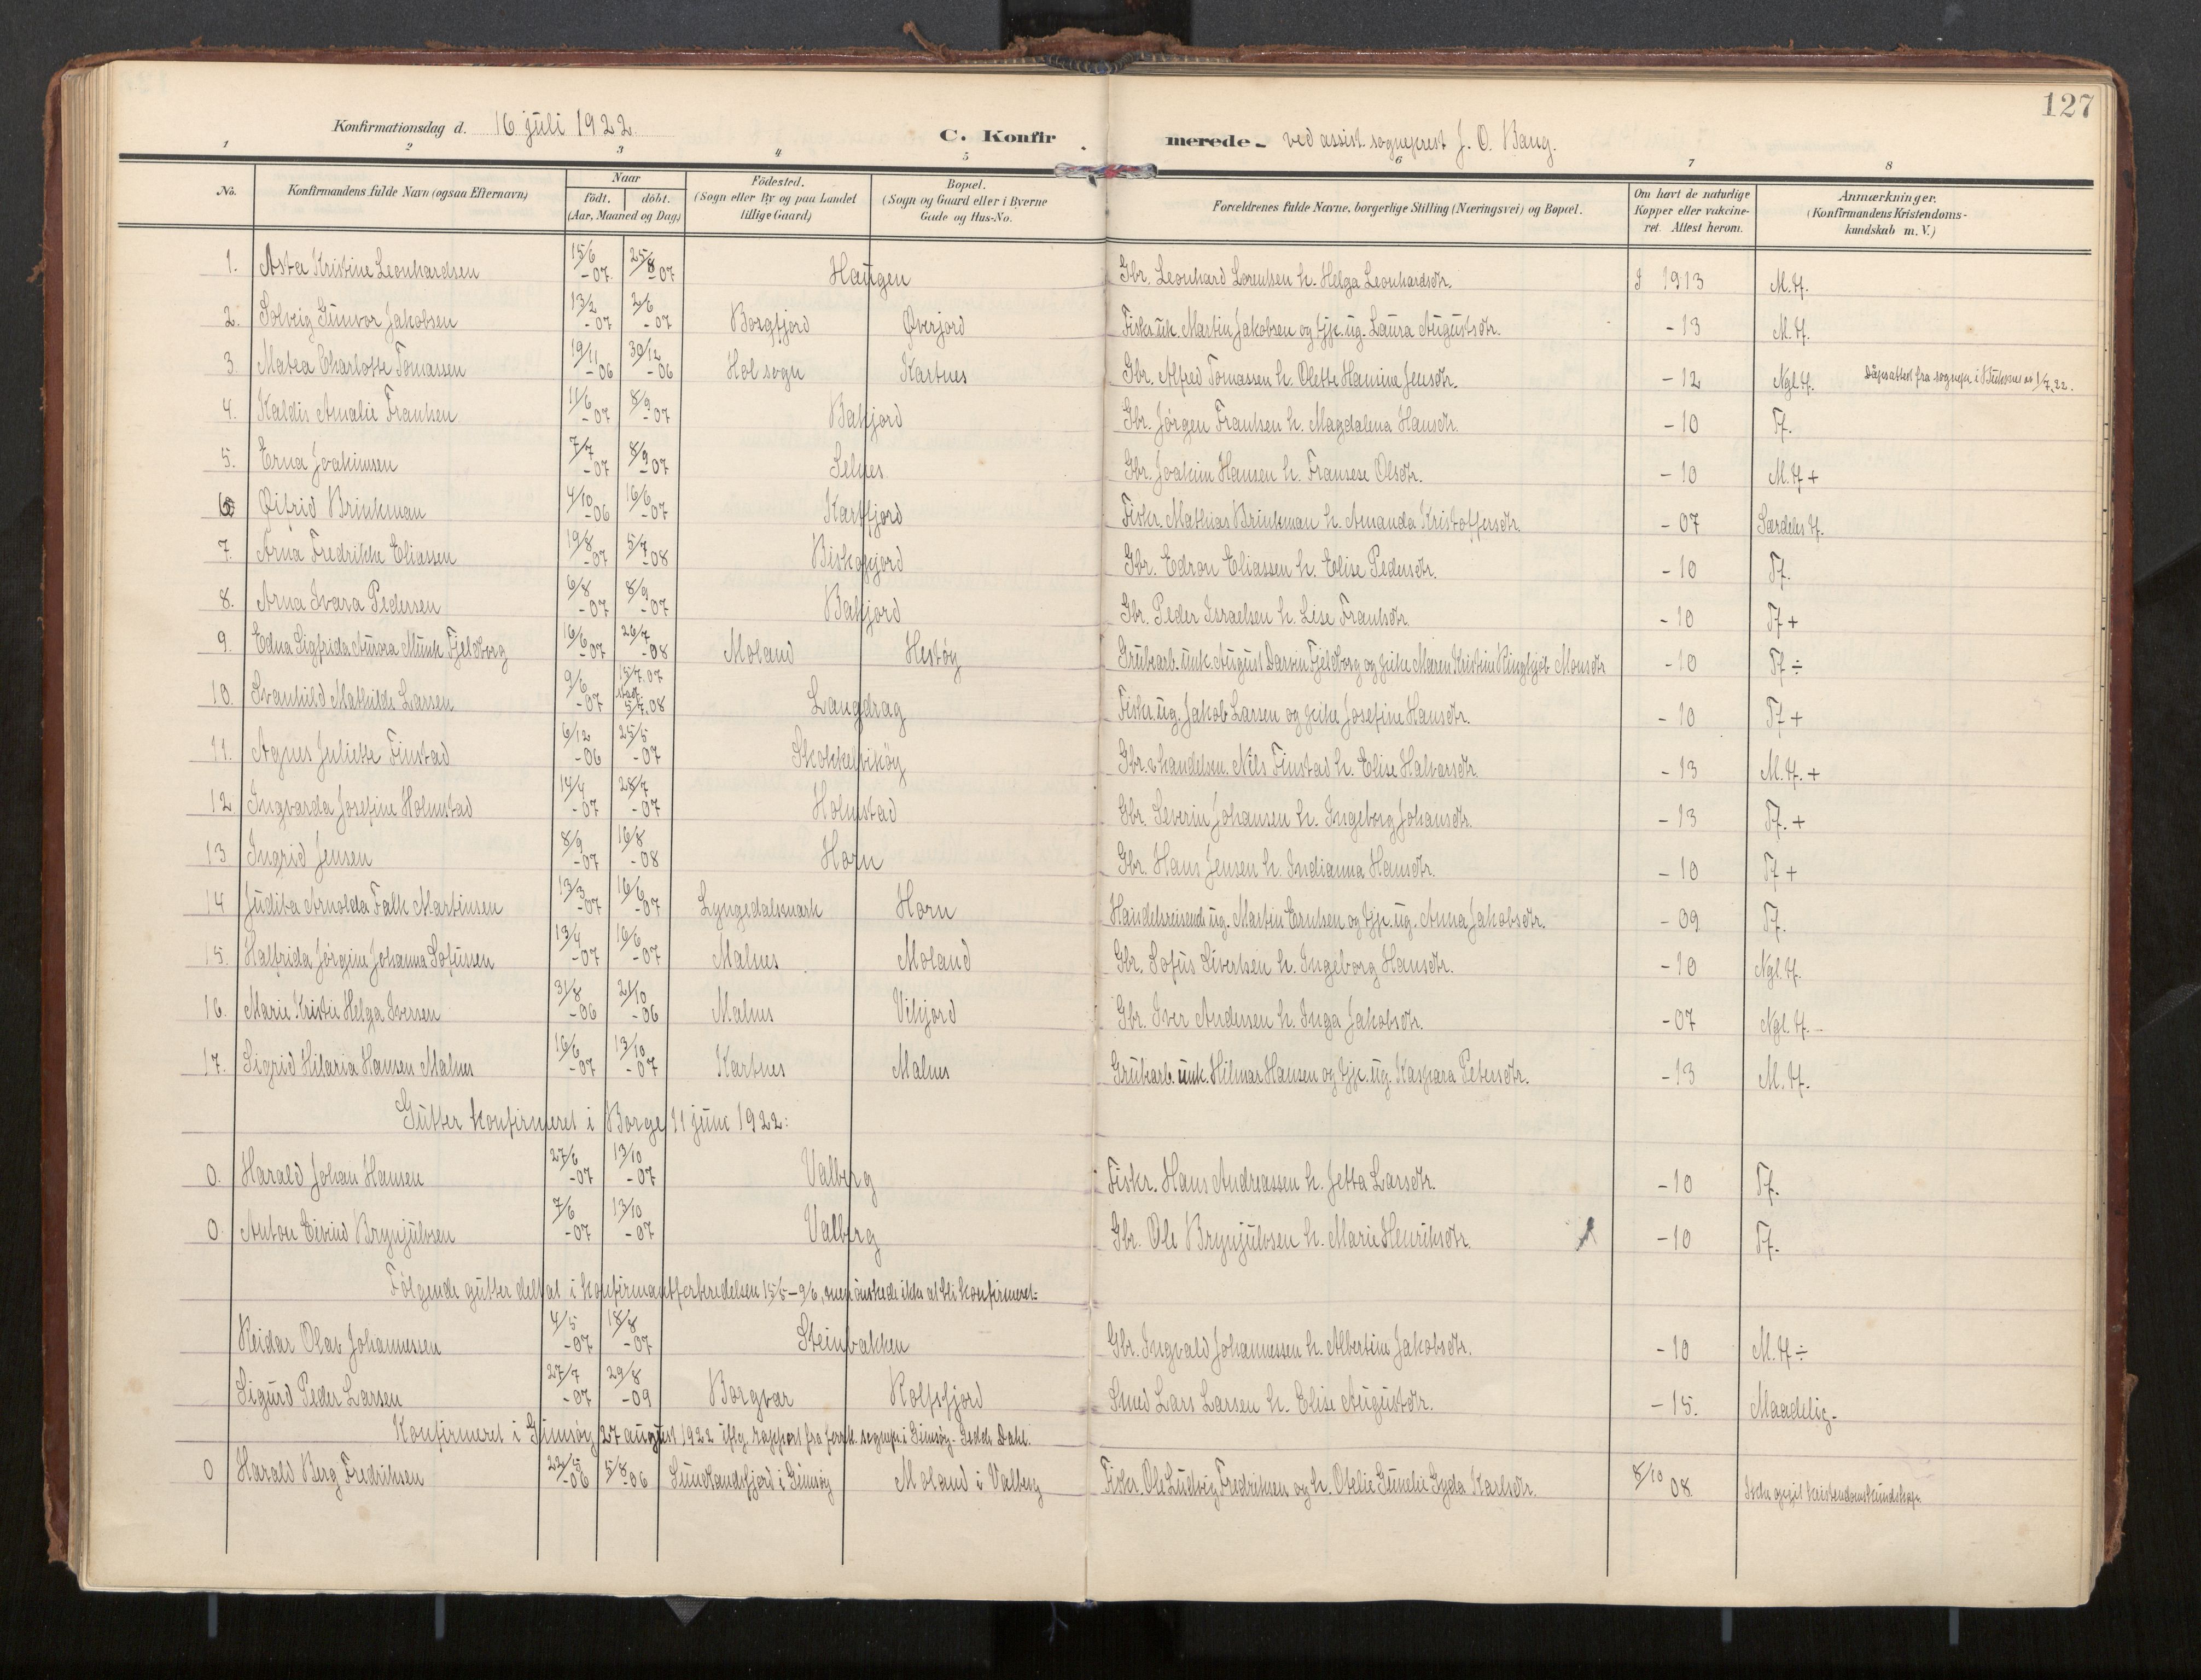 127
Konfirmationsdag d. 16 juli 1922. C. Konfirmerede - ved assist. sogneprest J. O. Baug.
1 2 3 4 5 6 7 8
No. Konfirmandens fulde Navn (ogsaa Efternavn) Naar födt. döbt. (Aar, Maaned og Dag) Födested. (Sogn eller By og paa Landet tillige Gaard) Bopæl. (Sogn og Gaard eller i Byerne Gade og Hus-No. Forældrenes fulde Navne, borgerlige Stilling (Næringsvei) og Bopæl. Om havt de naturlige Kopper eller vakcineret. Attest herom. Anmærkninger. (Konfirmandens Kristendomskundskab m. V.)
1. Asta Kristine Leonhardsen 15/6-07 25/8-07 Haugen Gbr. Leonhard Lorentsen h. Helga Leonhardsdtr. I 1913 M.tf.
2. Solveig Gunvor Jakobsen 13/2-07 2/6-07 Borgfjord Øverjord Fiskr. uk. Martin Jakobsen og tjp. ug. Laura Augustsdtr. -13 M.tf.
3. Matea Charlotte Tomassen 19/11-06 30/12-06 Hol sogn Kartnes Gbr. Alfred Tomassen h. Olette Hamine Jensdtr. -12 Ngl.tf. Dåpsattest fra sognepr i Buksnes 1/7.22.
4. Kaldis Amalie Frantsen 11/6-07 8/9-07 Bakjord Gbr. Jørgen Frantsen h. Magdalena Hansdtr. -10 Tf.
5. Erna Joakimsen 7/7-07 8/9-07 Selnes Gbr. Joakim Hansen h. Fransese Olsdtr. -10 M.tf +
6 Øifrid Brinkman 4/10-06 16/6-07 Kartfjord Fiskr. Mathias Brinkman h. Amanda Kristoffersdtr. -07 Særdeles tf.
7. Arna Fredrikke Eliassen 19/8-07 5/7-08 Biskopjord Gbr. Edron Eliassen h. Elise Pedersdtr. -10 Tf.
8. Arna Ivara Pedersen 6/8-07 8/9-07 Bakjord Gbr. Peder Israelsen h. Lise Frantsdtr. -10 Tf +
9. Edna Sigfrida Aurora Munk Fjeldborg 16/6-07 26/7-08 Moland Hestøy Grubearb. unk. August Darvin Fjeldborg og pike Maren Kristine Ringkjøb Monsdtr -10 Tf ÷
10. Svanhild Mathilde Larsen 9/6-07 15/7.07 stadf. 5/7.08 Langdrag Fiskr. ug. Jakob Larsen og pike Josefine Hansdtr. -10 Tf +
11. Agnes Juliette Finstad 6/12-06 25/5-07 Skokkelvikøy Gbr. & handelsm. Nils Finstad h. Elise Halvarsdtr. -13 M.tf. +
12 Ingvarda Josefine Holmstad 14/4-07 28/7-07 Holmstad Gbr. Severin Johansen h. Ingeborg Johansdtr. -13 Tf. +
13 Ingrid Jensen 8/9-07 16/8-08 Horn Gbr. Hans Jensen h. Indianna Hansdtr. -10 Tf +
14 Juditha Arnolda Falk Martinsen 13/3-07 16/6-07 Lyngedalsmark Horn Handelsreisende ug. Martin Erntsen og tjp. ug. Anna Jakobsdtr. -09 Tf.
15. Halfrida Jørgine Johanna Sofussen 13/4-07 16/6-07 Malnes Moland Gbr. Sofus Sivertsen h. Ingeborg Hansdtr. -10 Ngl.tf.
16. Marie Kristie Helga Iversen 31/8-06 21/10-06 Malnes Vikjord Gbr. Iver Andersen h. Inga Jakobsdtr. -07 Ngl.tf.-
17. Sigrid Hilaria Hansen Malnes 16/6-07 13/10-07 Kartnes Malnes Grubearb. unk. Hilmar Hansen og tjp. ug. Kaspara Petersdtr. -13 M.tf.
Gutter konfirmeret i Borge 11 juni 1922:
0. Harald Johan Hansen 27/6-07 13/10-07 Valberg Fiskr. Hans Andreassen h. Jetta Larsdtr. -10 Tf.
0. Anton Eivind Brynjulvsen 7/6-07 13/10-07 Valberg Gbr. Ole Brynjulvsen h. Marie Henriksdtr. -10 Tf.
Følgende gutter deltat i konfirmantforberedelsen 15/5-9/6, men ønskede ikke at bli konfirmeret:
Reidar Olav Johannessen 4/5-07 18/8-07 Steinbakken Gbr. Ingvald Johannessen h. Albertine Jakobsdtr. -10 M.tf ÷
Sigurd Peder Larsen 27/7-07 29/8-09 Borgvær Rolfsfjord Smed Lars Larsen h. Elise Augustdtr. -15. Maadelig-
Konfirmeret i Gimsøy 27 august 1922 iflg. rapport fra sognepr. i Gimsøy Gedde Dahl.
0 Harald Berg Fredriksen 22/5-06 5/8-06 Sundlandsfjord i Gimsøy Moland i Valberg Fiskr. Ole Ludvig Fredriksen og h. Otelie Gunelie Gyda Karlsdtr. 8/10 08 Ikke opgit kristendomskundskap.